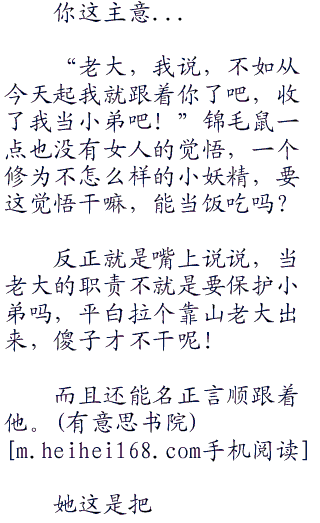 你这主意...
“老大，我说，不如从
今天起我就跟着你了吧，收
了我当小弟吧！”锦毛鼠一
点也没有女人的觉悟，一个
修为不怎么样的小妖精，要
这觉悟干嘛，能当饭吃吗？
反正就是嘴上说说，当
老大的职责不就是要保护小
弟吗，平白拉个靠山老大出
来，傻子才不干呢！
而且还能名正言顺跟着
他。(有意思书院)
[m.heihei168.com手机阅读]
她这是把